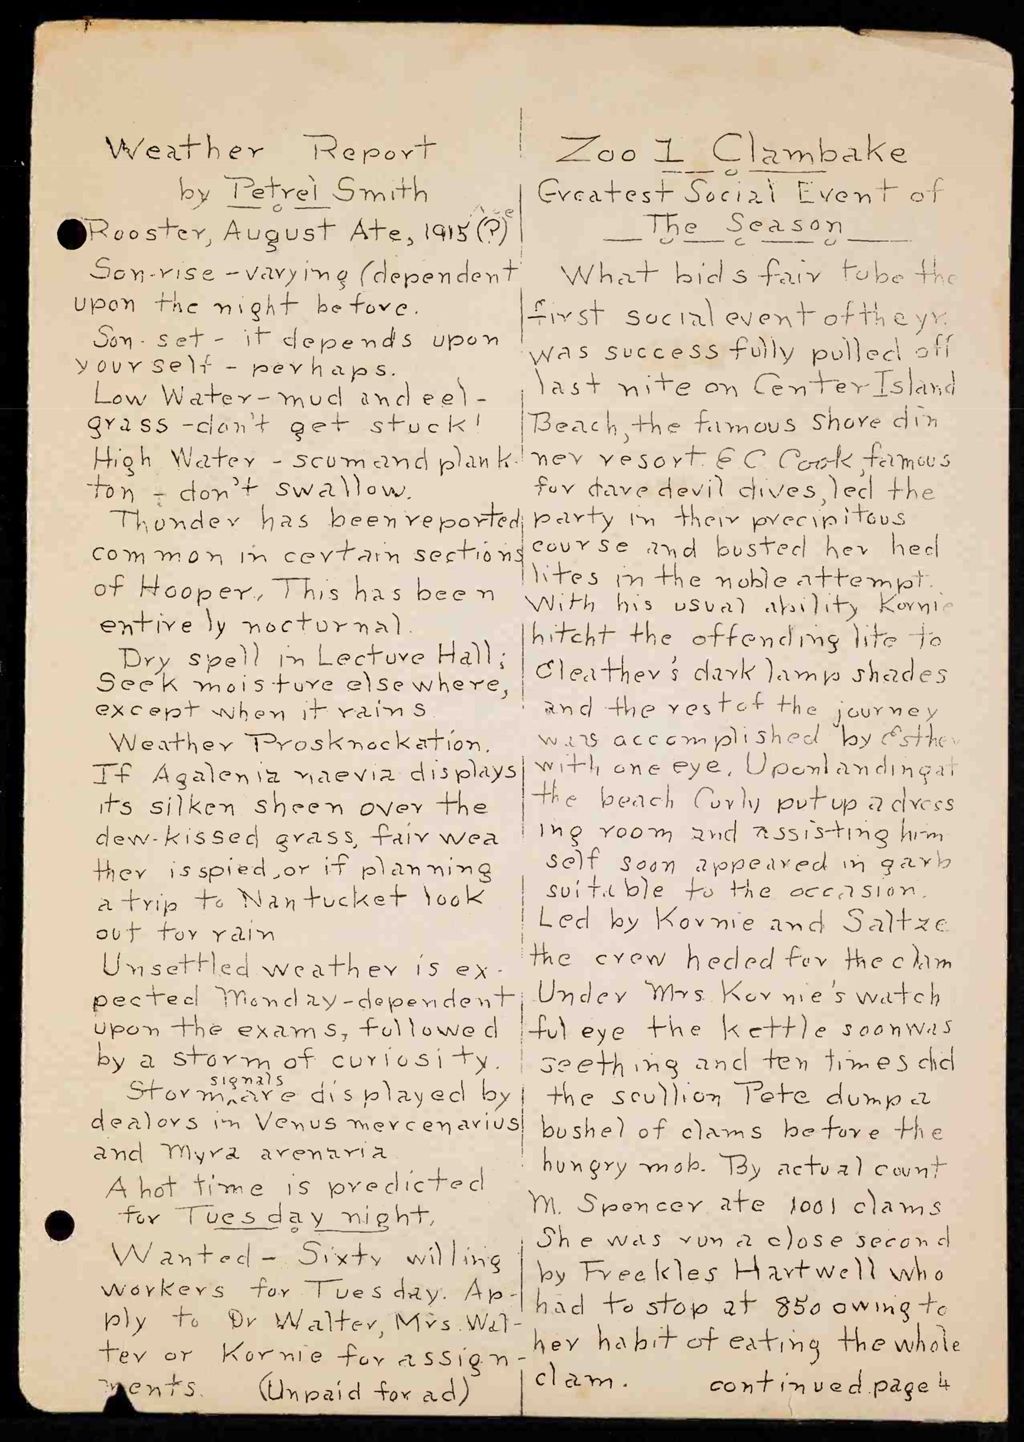 Weather Report
by Petrel Smith
Rooster, August Ate, 1915 (?)
Son-rise - varying (dependent
upon the night before.
Son-set - it depends upon
yourself - perhaps.
Low Water - mud and eel-
grass - don't get stuck!
High Water - scum and plank-
ton - don't swallow.
Thunder has been reported
common in certain sections
of Hooper. This has been
entirely nocturnal.
Dry spell in Lecture Hall;
Seek moisture elsewhere,
except when it rains
Weather Prosknockation.
If Agalenia naevia displays
its silken sheen over the
dew-kissed grass, fair wea
ther is spied, or if planning
a trip to Nantucket look
out for rain
Unsettled weather is ex-
pected Monday - dependent
upon the exams, followed
by a storm of curiosity.
Storm signals are displayed by
dealors in Venus mercenarius
and Myra arenaria
A hot time is predicted
for Tuesday night.
Wanted - Sixty willing
workers for Tuesday. Ap-
ply to Dr Walter, Mrs. Wal-
ter or Kornie for assign-
ments. (Unpaid for ad)
Zoo 1 Clambake
Greatest Social Event of
The Season
What bids fair to be the
first social event of the yr.
was successfully pulled off
last nite on Center Island
Beach, the famous shore din
ner resort. E C Cook, famous
for dare devil dives, led the
party in their precipitous
course and busted her hed
lites in the noble attempt.
With his usual ability Kornie
hitcht the offending lite to
Cleather's dark lamp shades
and the rest of the journey
was accomplished by Esther
with one eye. Upon landing at
the beach Curly put up a dress
ing room and assisting him
self soon appeared in garb
suitable to the occasion.
Led by Kornie and Saltze
the crew heded for the clam
Under Mrs. Kornie's watch
ful eye the kettle soon was
seething and ten times did
the scullion Pete dump a
bushel of clams before the
hungry mob. By actual count
M. Spencer ate 1001 clams
She was run a close second
by Freckles Hartwell who
had to stop at 850 owing to
her habit of eating the whole
clam. continued page 4